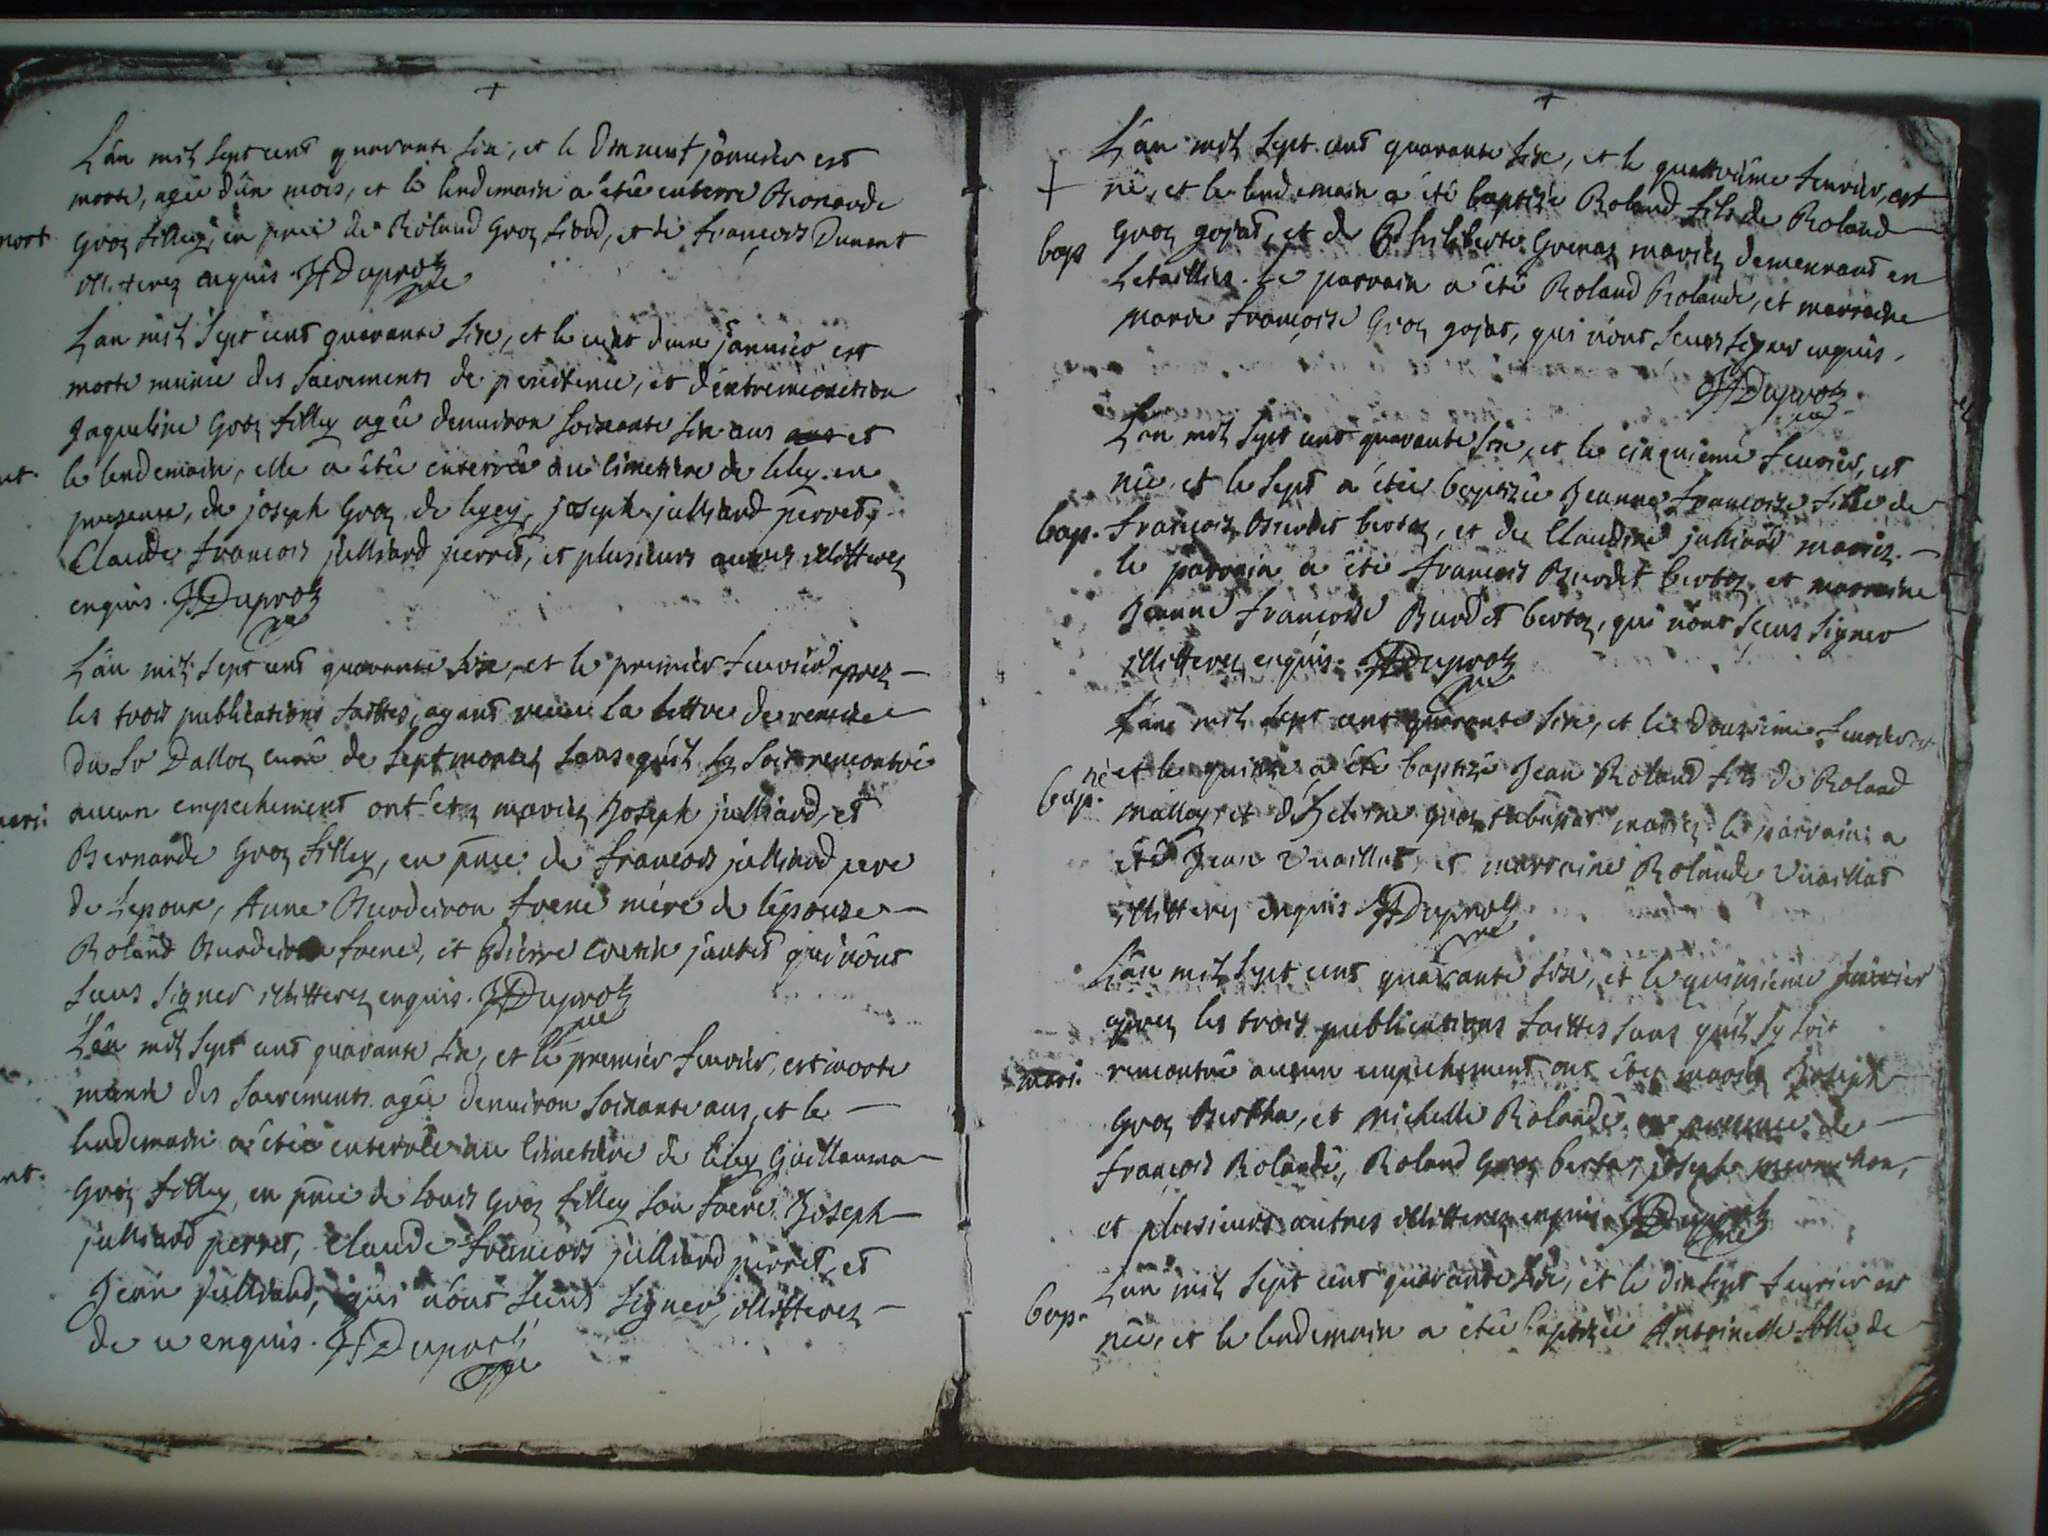 +
L'an mil sept cent quarante six, et le dixneuf januier est
morte, agée d'un mois, et le lendemain a etée enterre Bernarde
mort
groz filley, en pnce de Roland Groz and, et de françois Dunant
illiterez enquis JfDuproz
L'an mil sept cent quarante six, et le vint deux januier est
morte munie des sacrements de penitence, et d'extremeonction
Jaqueline Groz filley agée denuiron soixante six ans et
le lendemain, elle a étée enterrée au cimetiere de lelex en
presence, de joseph Groz de lezey, joseph julliard perret,
Claude françois julliard perret, et plusieurs autres illitterez
enquis. JfDuproz
L'an mil sept cent quarante six, et le premier feurier aprez
les trois publications faittes, ayant receu la lettre de remise
du Sr Dalloz curé de Septmoncel sans qu'il sy soit rencontré
mari:
aucun empechement ont étez mariez Joseph julliard, et
Bernarde Groz filley, en pnce de françois julliard pere
de l'epoux, Anne Burdeiron frene mére de l'épouze
Roland Burdeiron frene, et Pierre Coutin jantet qui n'ont
sceus signer illitterez enquis. JfDuproz
L'an mil sept cent quarante six, et le premier feurier, est morte
munie des sacrements agée denuiron soixante ans, et le
lendemain a étée enterrée au cimetiere de lelex Guillauma
Groz filley, en pnce de Louis Groz filley son frere Joseph
julliard perret, Claude françois julliard perret, et
Jean julliard, qui n'ont sceus signer, illitterez
de ce enquis. JfDuproz
+
L'an mil sept cent quarante six, et le quattriéme feurier, est
né, et le lendemain a été baptizé Roland fils de Roland
bap
Groz gojat, et de Philiberte Grenaz mariez demeurant en
Letaillies. Le parrain a été Roland Rolande, et marraine
marie françoise Groz gojat, qui n'ont sceus signer enquis.
JfDuproz
L'an mil sept cent quarante six, et le cinquieme feurier, est
née, et le sept a étée baptizée Jeanne françoise fille de
bap.
françois Burdet bertoz, et de Claudine julliard mariez.
le parrain a été françois Burdet bertoz et marraine
Jeanne françoise Burdet bertoz, qui n'ont sceus signer
illitterez enquis. JfDuproz
L'an mil sept cent quarante six, et le douzieme feurier est
né et le quinze a été baptizé Jean Roland fils de Roland
bap.
mallay, et d'helerne groz mariez le parrain a
été Jean Vuaillat, et marraine Rolande Vuaillat
illitterez enquis JfDuproz
L'an mil sept cent quarante six, et le quinsieme feurier
aprez les trois publications faittes sans qu'il sy soit
mari.
rencontré aucun empechement ont étez mariez Joseph
Groz Bertha, et michelle Rolande en presence de
françois Rolande, Roland Groz bertha, joseph
et plusieurs autres illitterez enquis. JfDuproz
L'an mil sept cent quarante six, et le dixsept feurier est
bap.
née, et le lendemain a étée baptizée Antoinette fille de